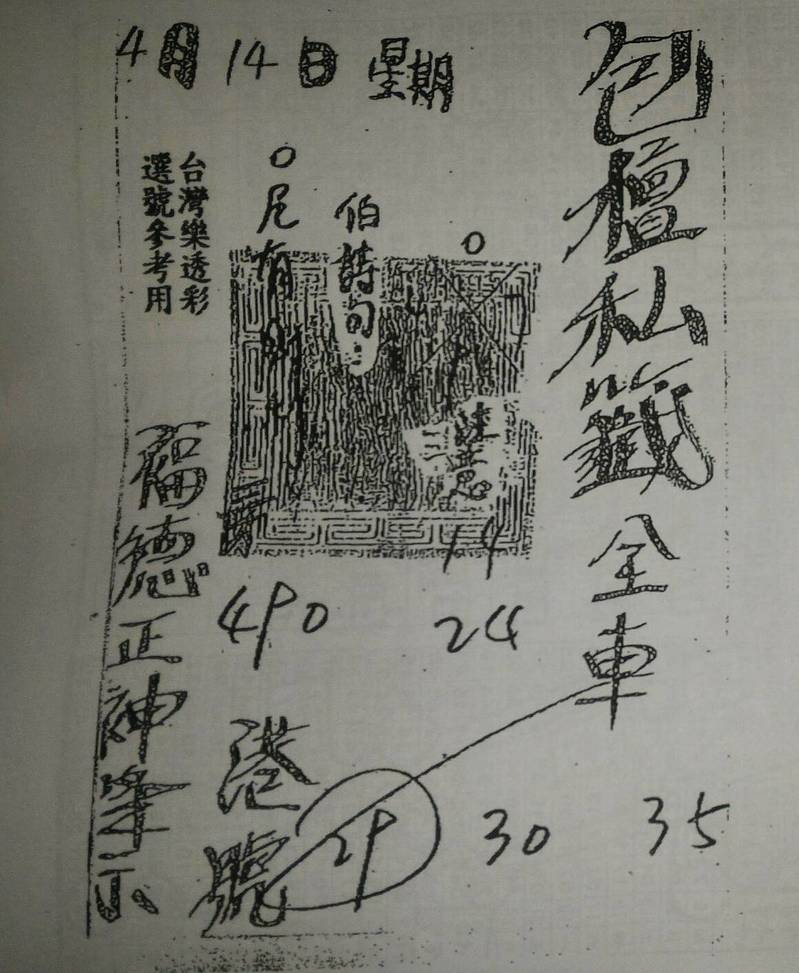 4月14日 星期
包壇私籤全車
台灣樂透彩
選號參考用
伯詩句:
0尾有
0
三
14
490
24
福德正神筆示
港號
29
30
35